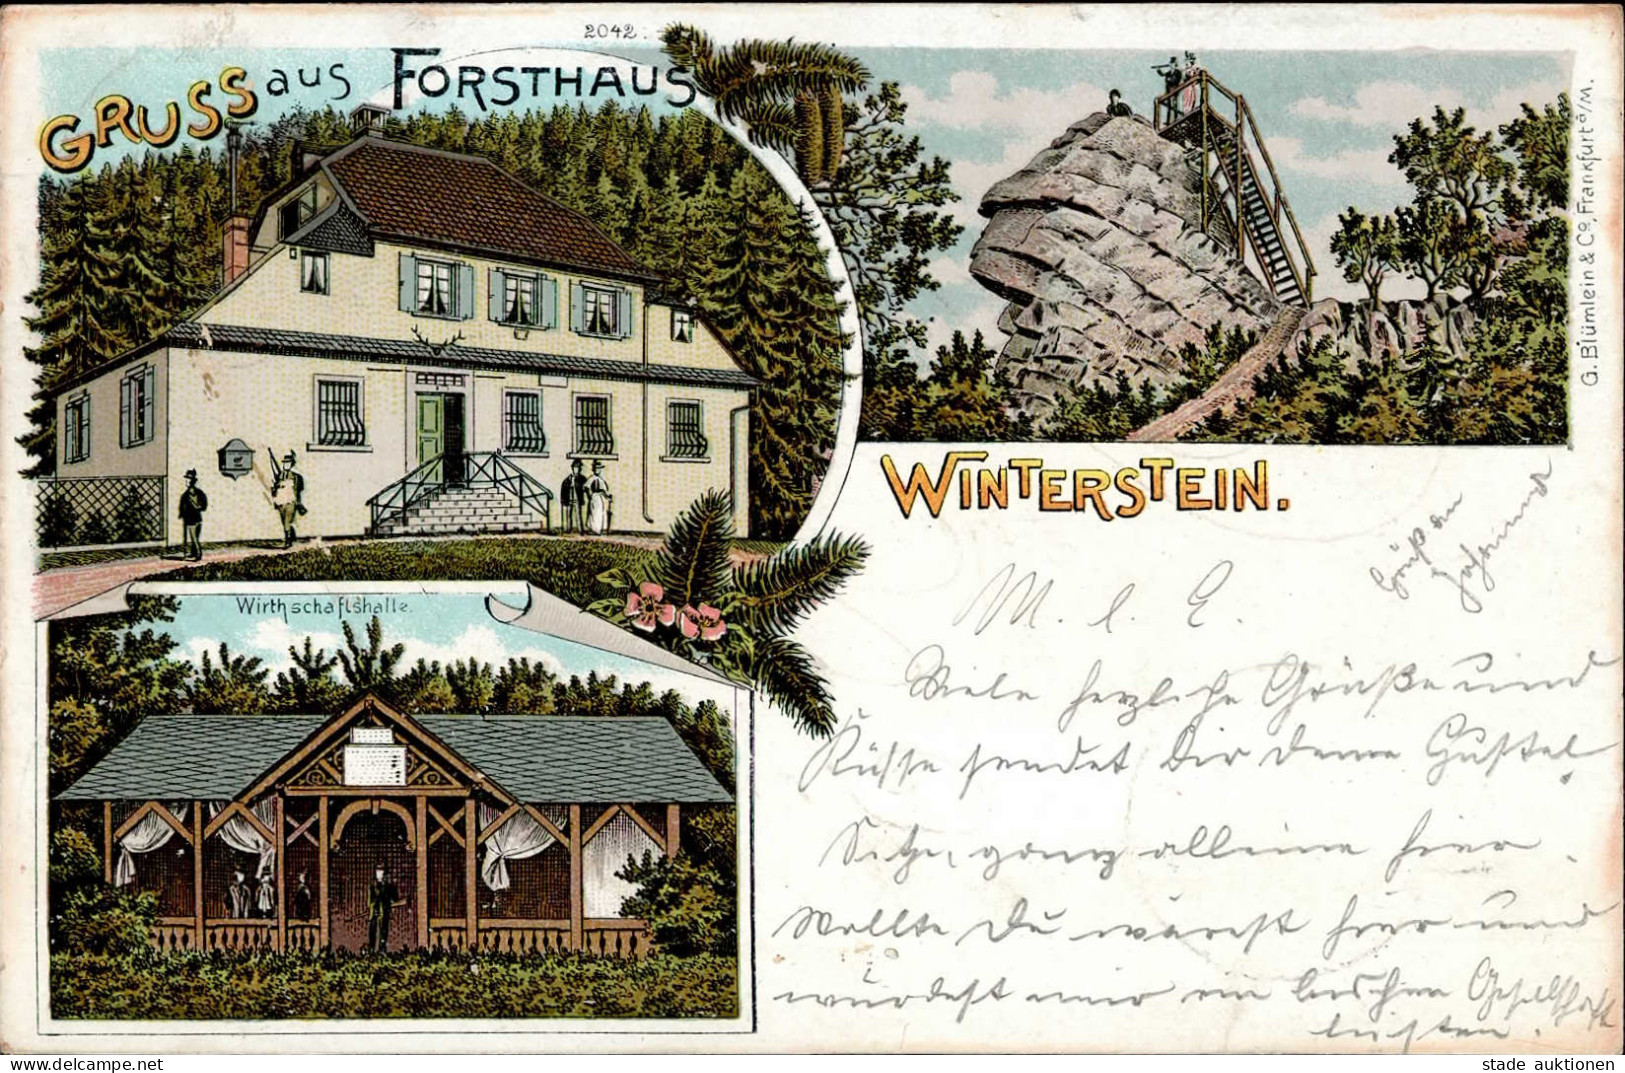 2042.
GRUSS aus FORSTHAUS
WINTERSTEIN.
Wirthschaftshalle.
G. Blümlein & Co, Frankfurt a/M.
Grüß an
M. l. E.
Viele herzliche Grüße und
Küsse sendet Dir Deine Gustel
Sitze, ganz alleine hier.
Wollte Du wärest hier und
würdest mir ein bischen Gesellschaft
leisten.
stade auktionen